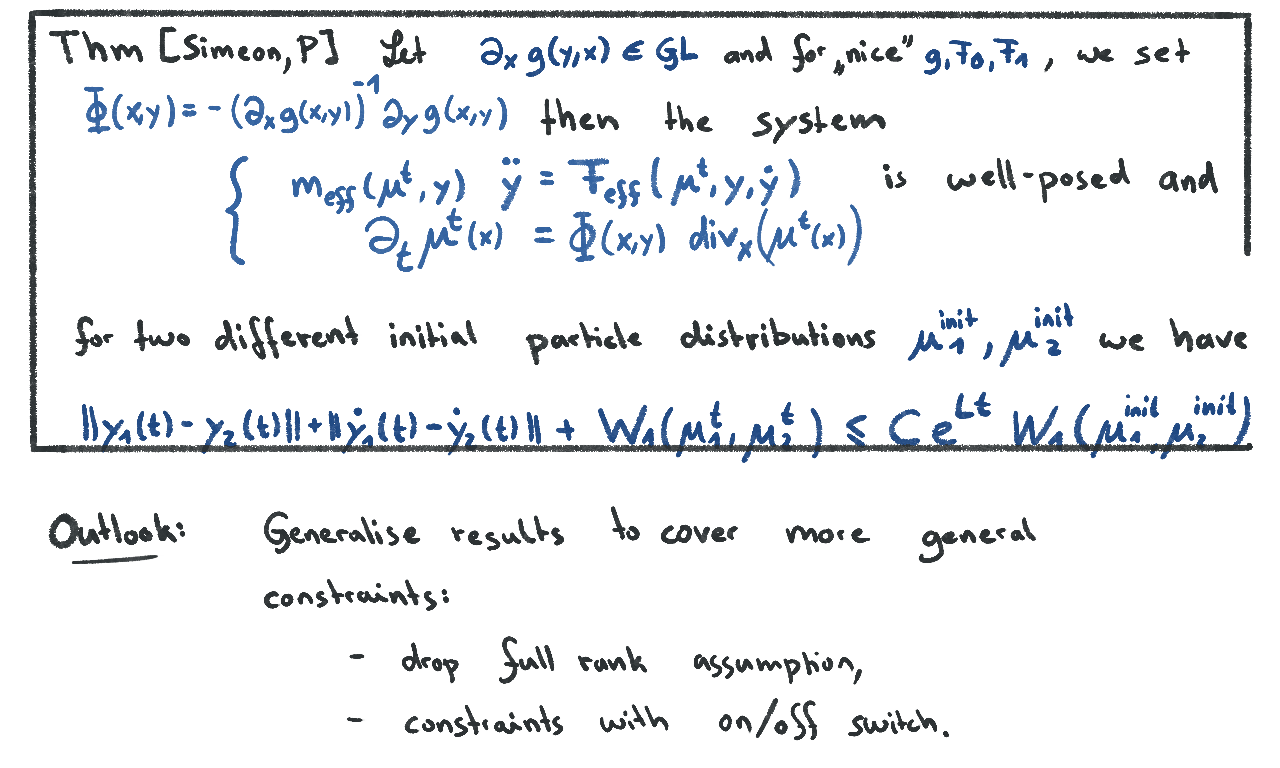 Thm [Simeon, P] Let ∂ₓ g(y,x) ∈ GL and for „nice" g, F₀, F₁, we set
Φ(x,y) = - (∂ₓg(x,y))⁻¹ ∂ᵧ g(x,y) then the system
{ m_eff(μᵗ, y) ÿ = F_eff(μᵗ, y, ẏ) is well-posed and
∂ₜ μᵗ(x) = Φ(x,y) divₓ(μᵗ(x))
for two different initial particle distributions μ₁^init, μ₂^init we have
||y₁(t) - y₂(t)|| + ||ẏ₁(t) - ẏ₂(t)|| + W₁(μ₁ᵗ, μ₂ᵗ) ≤ C e^{Lt} W₁(μ₁^init, μ₂^init)
Outlook: Generalise results to cover more general
constraints:
- drop full rank assumption,
- constraints with on/off switch.